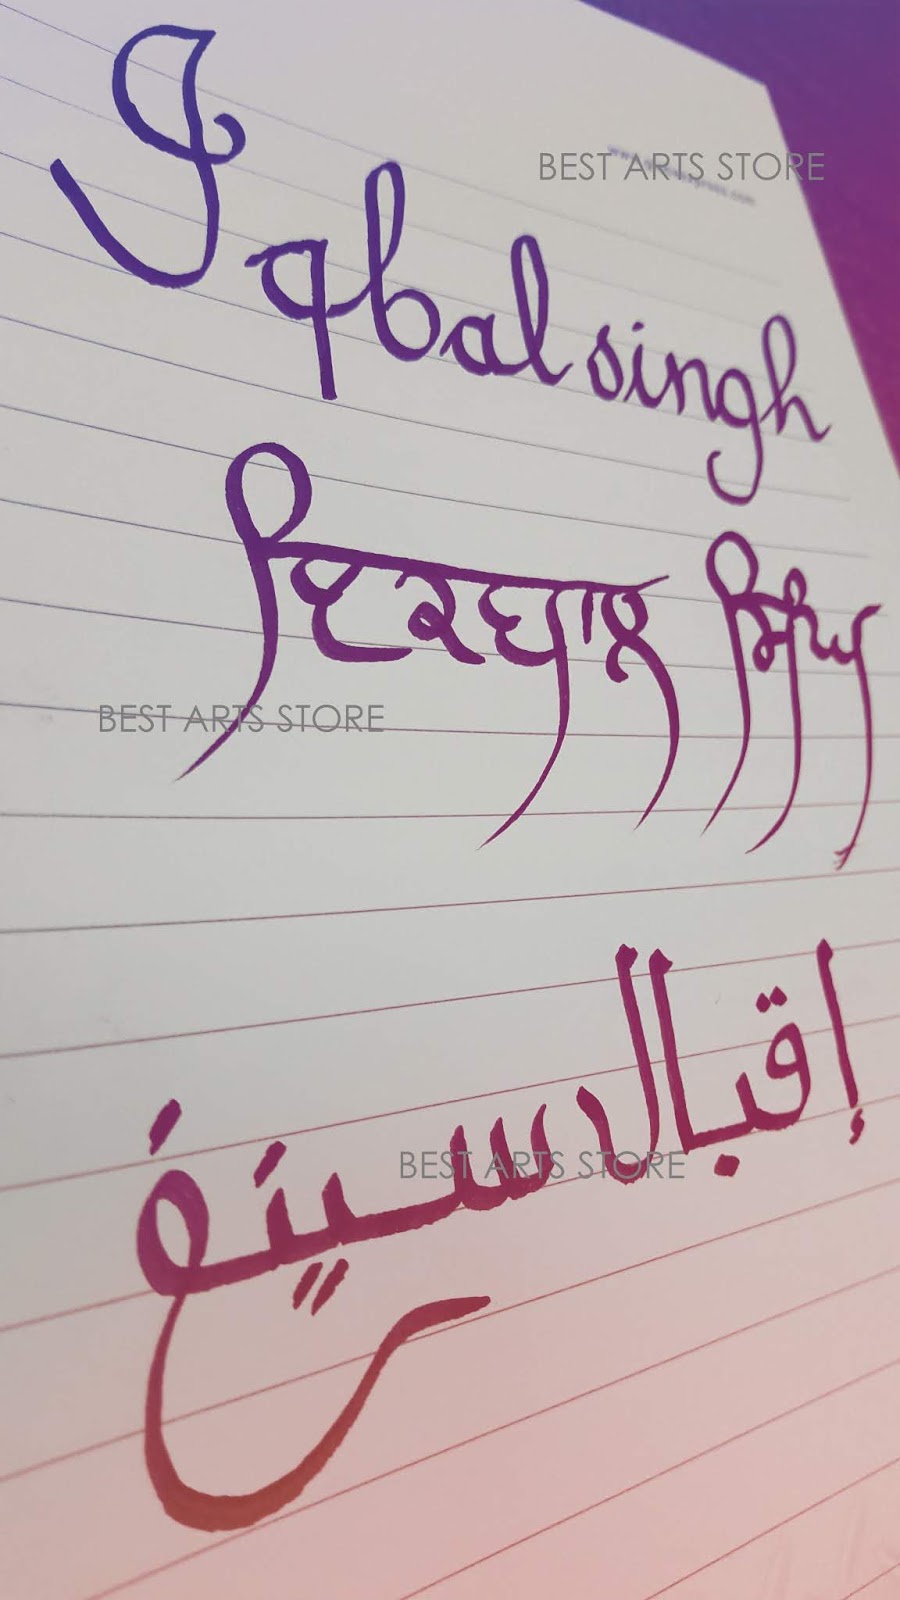 BEST ARTS STORE
Iqbal singh
ਇਕਬਾਲ ਸਿੰਘ
BEST ARTS STORE
إقبال سينغ
BEST ARTS STORE